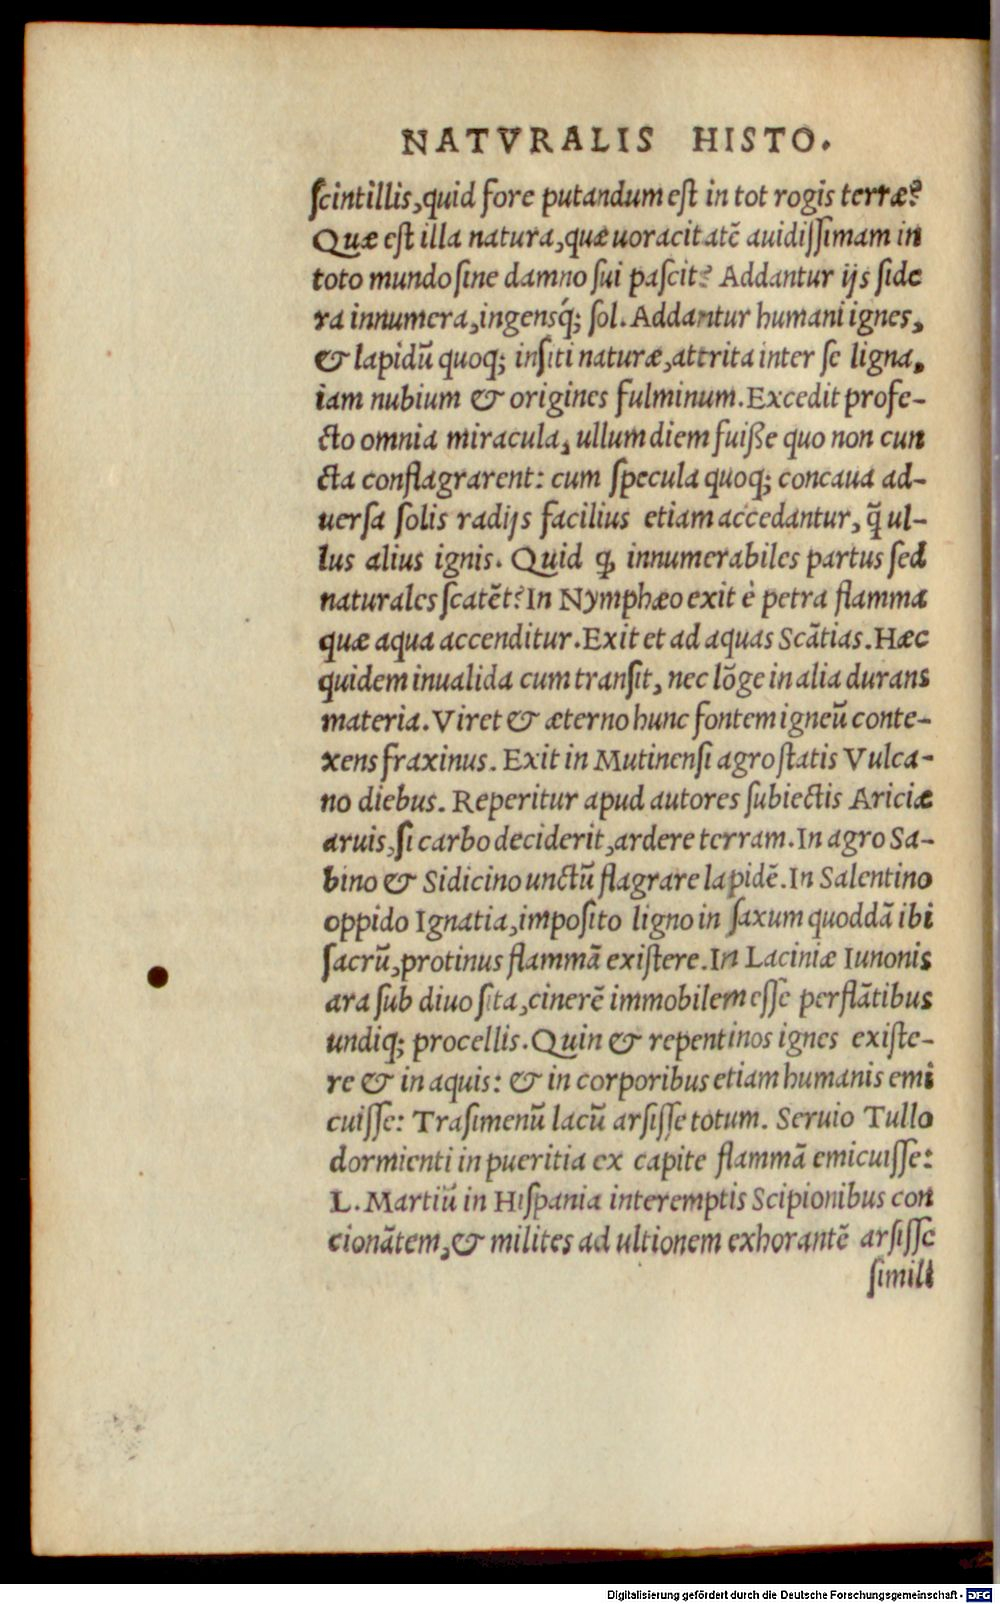 NATVRALIS HISTO.
ſcintillis, quid fore putandum eſt in tot rogis terræ?
Quæ eſt illa natura, quæ uoracitatē auidiſſimam in
toto mundo ſine damno ſui paſcit? Addantur ijs ſide
ra innumera, ingensq́; ſol. Addantur humani ignes,
& lapidū quoq; inſiti naturæ, attrita inter ſe ligna,
iam nubium & origines fulminum. Excedit profe-
cto omnia miracula, ullum diem fuiße quo non cun
cta conflagrarent: cum ſpecula quoq; concaua ad-
uerſa ſolis radijs facilius etiam accedantur, q̃ ul-
lus alius ignis. Quid ꝙ innumerabiles partus ſed
naturales ſcatēt? In Nymphæo exit è petra flamma
quæ aqua accenditur. Exit et ad aquas Scãtias. Hæc
quidem inualida cum tranſit, nec lõge in alia durans
materia. Viret & æterno hunc fontem igneū conte-
xens fraxinus. Exit in Mutinenſi agro ſtatis Vulca-
no diebus. Reperitur apud autores ſubiectis Ariciæ
aruis, ſi carbo deciderit, ardere terram. In agro Sa-
bino & Sidicino unctū flagrare lapidē. In Salentino
oppido Ignatia, impoſito ligno in ſaxum quoddã ibi
ſacrū, protinus flammã exiſtere. In Laciniæ Iunonis
ara ſub diuo ſita, cinerē immobilem eſſe perflãtibus
undiq; procellis. Quin & repentinos ignes exiſte-
re & in aquis: & in corporibus etiam humanis emi
cuiſſe: Traſimenū lacū arſiſſe totum. Seruio Tullo
dormienti in pueritia ex capite flammã emicuiſſe:
L. Martiū in Hiſpania interemptis Scipionibus con
cionãtem, & milites ad ultionem exhorantē arſiſſe
ſimili
Digitalisierung gefördert durch die Deutsche Forschungsgemeinschaft - DFG